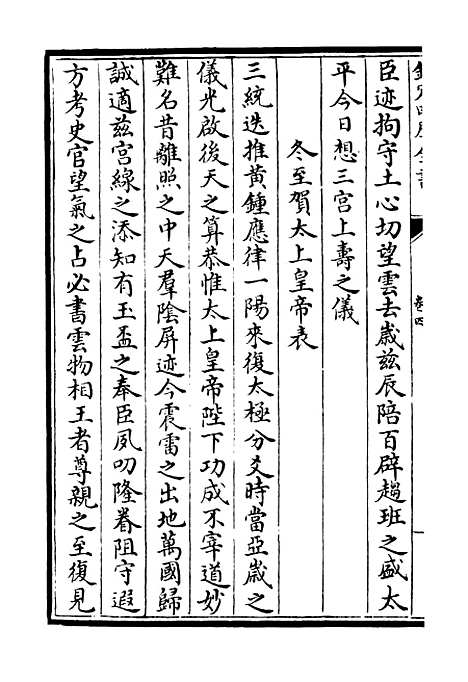 臣迹拘守土心切望雲去歲兹辰陪百辟趨班之盛太
平今日想三宫上壽之儀
冬至賀太上皇帝表
三統迭推黄鍾應律一陽來復太極分爻時當亞歲之
儀光啟後天之算恭惟太上皇帝陛下功成不宰道妙
難名昔離照之中天羣陰屏迹今震雷之出地萬國歸
誠適兹宫線之添知有玉盃之奉臣夙叨隆眷阻守遐
方考史官望氣之占必書雲物相王者尊親之至復見